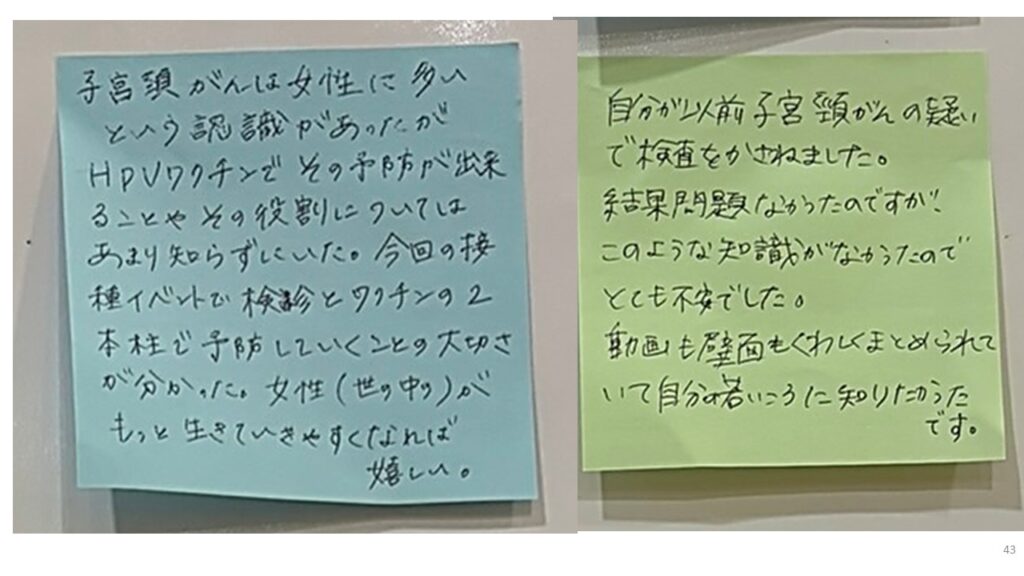 子宮頸がんは女性に多い
という認識があったが
HPVワクチンでその予防が出来
ることやその役割については
あまり知らずにいた。今回の接
種イベントで検診とワクチンの2
本柱で予防していくことの大切さ
が分かった。女性(世の中の)が
もっと生きていきやすくなれば
嬉しい。
自分が以前子宮頸がんの疑い
で検査をかさねました。
結果問題なかったのですが、
このような知識がなかったので
とても不安でした。
動画も壁面もくわしくまとめられて
いて自分の若いころに知りたかった
です。
43